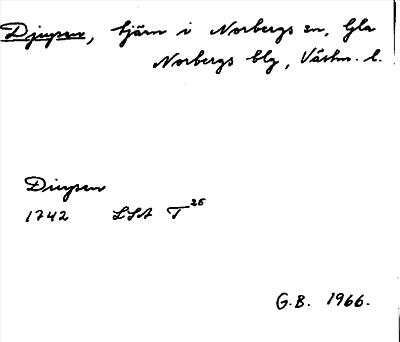 Djupsen, tjärn i Norbergs sn, Gla
Norbergs blg, Västm. l.
Diupsen
1742 LSA T 26
G.B. 1966.